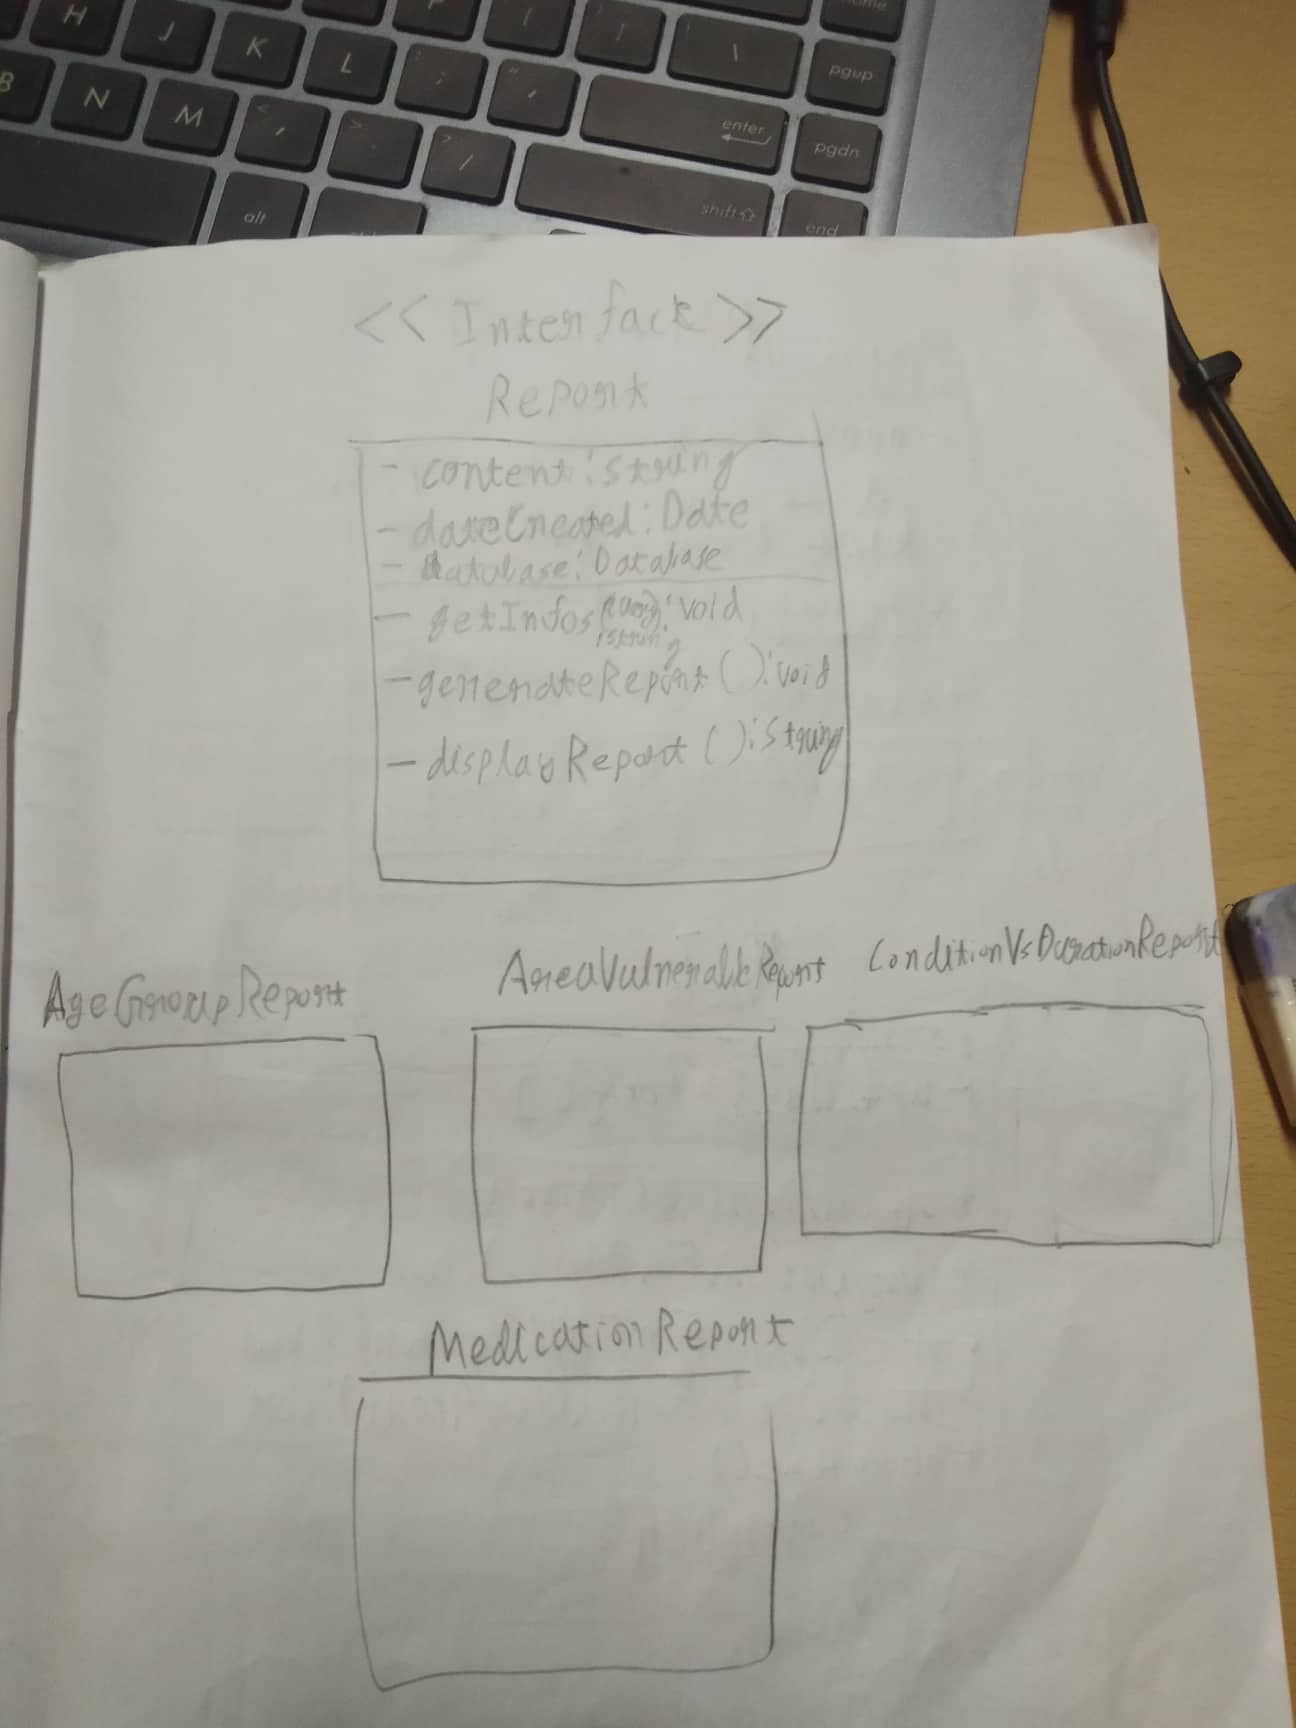 H J K L ; " ' \ pgup
B N M < , > . ? / enter pgdn
alt shift end
<< Interface >>
Report
- content : string
- dateCreated : Date
- database : Database
- getInfos (query : void
: string
- generateReport ( ) : void
- displayReport ( ) : String
AgeGroupReport
AreaVulnerableReport
ConditionVsDurationReport
MedicationReport